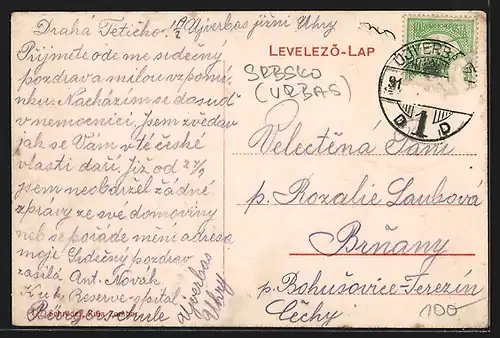 Drahá Tetičko. 10/2 Ujverbas jižní Uhry
Přijměte ode me srdečný
pozdrav a milou vzpomí
nku. Nacházím se dosud
v nemocnici. Jsem zvědav
jak se Vám v té české
vlasti daří. Již od 27/9
jsem neobdržel žádné
zprávy ze své domoviny
neb se pořáde mění adresa
moje. Srdečný pozdrav
zasílá Ant. Novák
K.u.k. Reserve-spital
Bürgerschule
Ujverbas
Uhry
LEVELEZŐ-LAP
SRBSKO
(VRBAS)
UJVERBA
1
D D
Velectěna Paní
p. Rozalie Laubová
Brňany
p. Bohušovice-Terezín
Čechy
100-